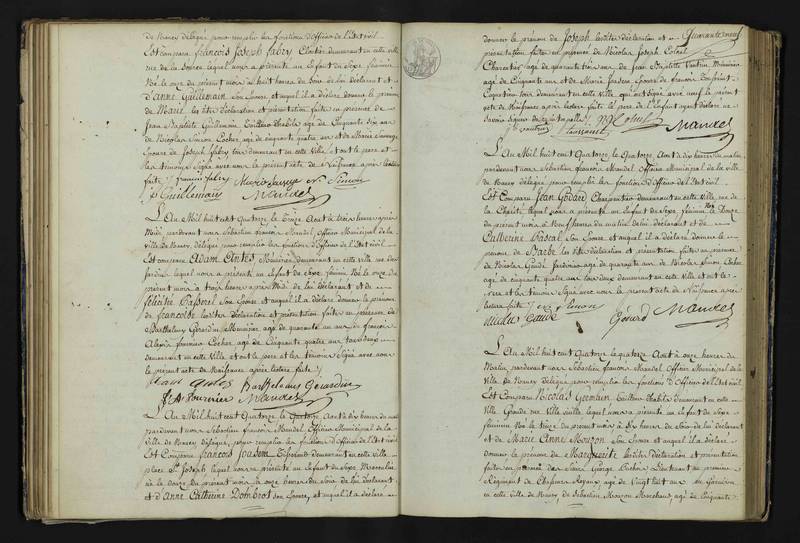 de Nancy délégué pour remplir les fonctions d'Officier de l'Etat civil
Est comparu françois Joseph fabry Cloutier demeurant en cette ville
rue de la Source lequel nous a présenté un Enfant du Sexe féminin
Né le onze du présent mois à huit heures du Soir de lui déclarant et
d'Anne Guillemain Son Epouse, et auquel il a déclaré donner le prénom
de Marie, les dites déclaration et présentation faites en présence de
Jean Baptiste Guillemain âgé de Cinquante dix ans
de Nicolas Simon Cocher, age de cinquante quatre ans et de Marie Sauvage
Epouse de Joseph fabry tous demeurant en cette Ville, et ont le pere et
les témoins Signé avec nous le présent acte de Naissance après lecture
faite françois fabry Marie Sauvage N Simon
Guillemain Mandel
L'An Mil huit cent Quatorze le Treize Aout à trois heures après
Midi pardevant nous Sébastien françois Mandel Officier Municipal de la
Ville de Nancy, délégué pour remplir les fonctions d'Officier de l'Etat civil
Est comparu Adam Antes Menuisier demeurant en cette Ville rue des
Jardins lequel nous a présenté un Enfant du Sexe féminin Né le onze du
présent mois à trois heures après Midi de lui déclarant et de
félicité Son Epouse et auquel il a déclaré donner le prénom
de françoise les dites déclaration et présentation faites en présence de
Barthelemy Gerardin Menuisier, age de quarante un ans de françois
Alexis fourrier Cocher age de Cinquante quatre ans tous deux
demeurant en cette Ville et ont le pere et les témoins Signé avec nous
le présent acte de Naissance après lecture faite
adam antes Barthelemy Gerardin
f A fourrier Mandel
L'An Mil huit cent Quatorze le Quatorze Aout à dix heures du matin
pardevant nous Sébastien françois Mandel Officier Municipal de la
Ville de Nancy délégué, pour remplir les fonctions d'Officier de l'Etat civil
Est Comparu françois demeurant en cette Ville
place St Joseph lequel nous a présenté un Enfant du Sexe Masculin
né le douze du présent mois à onze heures du Soir de lui déclarant,
et d'Anne Catherine Dombrot son Epouse, et auquel il a déclaré
donner le prénom de Joseph les dites déclaration et
présentation faites en présence de Nicolas Joseph Colnel
Quarante neuf
Charpentier age de quarante trois ans de Jean Baptiste Vautrin Menuisier
age de Cinquante ans et de Marie Epouse de françois
tous demeurant en cette Ville, qui ont Signé avec nous le présent
acte de Naissance après lecture faite le pere de l'Enfant ayant déclaré ne
savoir Signer de ce interpellé N J Colnel
Vautrin Mandel
L'An Mil huit cent Quatorze le Quatorze Aout à dix heures du matin
pardevant nous Sébastien françois Mandel Officier Municipal de la ville
de Nancy délégué pour remplir les fonctions d'Officier de l'Etat civil
Est Comparu Jean Godard Charpentier demeurant en cette Ville, rue de
la Charité lequel nous a présenté un Enfant du Sexe féminin Née le Douze
du présent mois à Neuf heures du matin de lui déclarant et de
Catherine Pascal Son Epouse et auquel il a déclaré donner le
prénom de Barbe les dites déclaration et présentation faites en présence
de Nicolas Gaudé Jardinier age de quarante ans de Nicolas Simon Cocher
age de cinquante quatre ans tous deux demeurant en cette Ville et ont le
pere et les témoins Signé avec nous le present acte de Naissance après
lecture faite N Simon
Nicolas Gaudé Godard Mandel
L'An Mil huit cent Quatorze le quatorze Aout à onze heures du
Matin pardevant nous Sébastien françois Mandel Officier Municipal de la
Ville de Nancy délégué pour remplir les fonctions d'Officier de l'Etat civil
Est Comparu Nicolas Germain demeurant en cette
Ville Grande rue Ville vieille lequel nous a présenté un Enfant du Sexe
féminin Née le treize du present mois à dix heures du Soir de lui déclarant
et de Marie Anne Mouzon Son Epouse et auquel il a déclaré
donner le prénom de Marguerite les dites déclaration et présentation
faites en présence de Lieutenant au premier
Régiment de Chasseurs Royaux, age de Vingt huit ans en Garnison
en cette ville de Nancy, de Sébastien Mouzon Marechaux, age de Cinquante